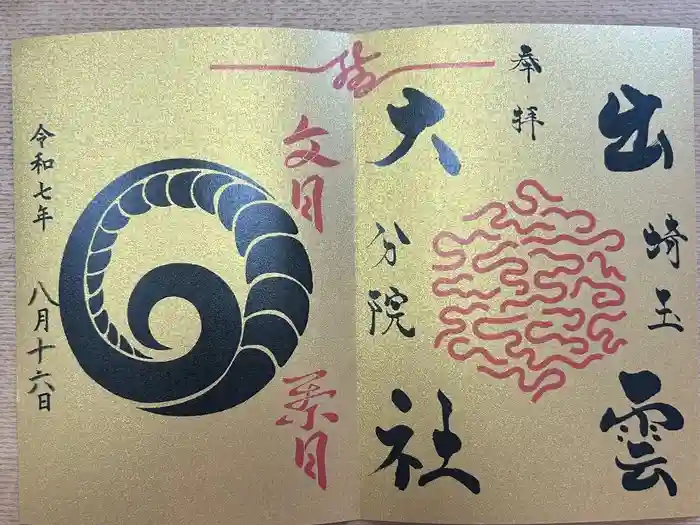 奉拝
出雲
埼玉
大社
分院
文月
葉月
令和七年
八月十六日